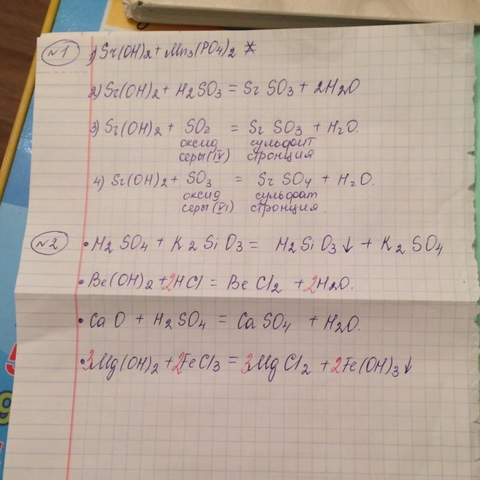 №1 1) Sr(OH)2 + Mn3(PO4)2 *
2) Sr(OH)2 + H2SO3 = SrSO3 + 2H2O
3) Sr(OH)2 + SO2 = SrSO3 + H2O.
оксид сульфит
серы(IV) стронция
4) Sr(OH)2 + SO3 = SrSO4 + H2O.
оксид сульфат
серы(VI) стронция.
№2 • H2SO4 + K2SiO3 = H2SiO3↓ + K2SO4
• Be(OH)2 + 2HCl = BeCl2 + 2H2O.
• CaO + H2SO4 = CaSO4 + H2O.
• 3Mg(OH)2 + 2FeCl3 = 3MgCl2 + 2Fe(OH)3↓